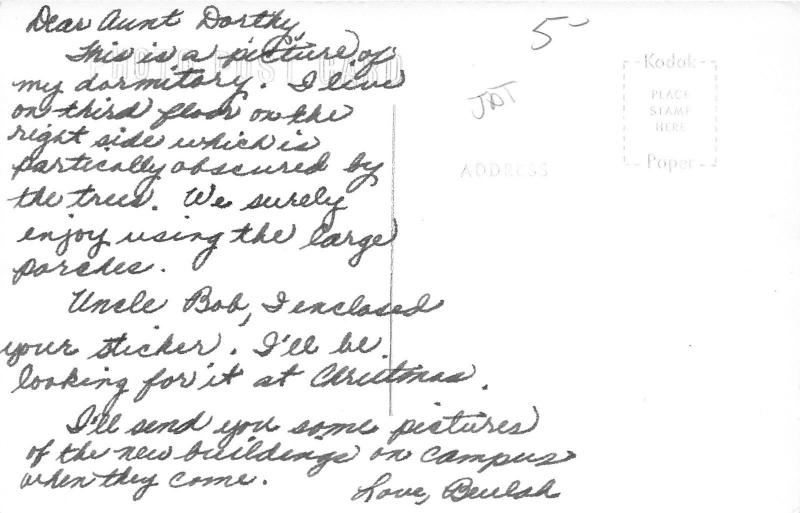 Dear Aunt Dorthy,
This is a picture of
my dormitory. I live
on third floor on the
right side which is
partically obscured by
the trees. We surely
enjoy using the large
porches.
Uncle Bob, I enclosed
your sticker. I'll be
looking for it at Christmas.
I'll send you some pictures
of the new buildings on campus
when they come.
Love, Beulah
PHOTO POST CARD
5-
JDT
ADDRESS
Kodak
PLACE
STAMP
HERE
Paper